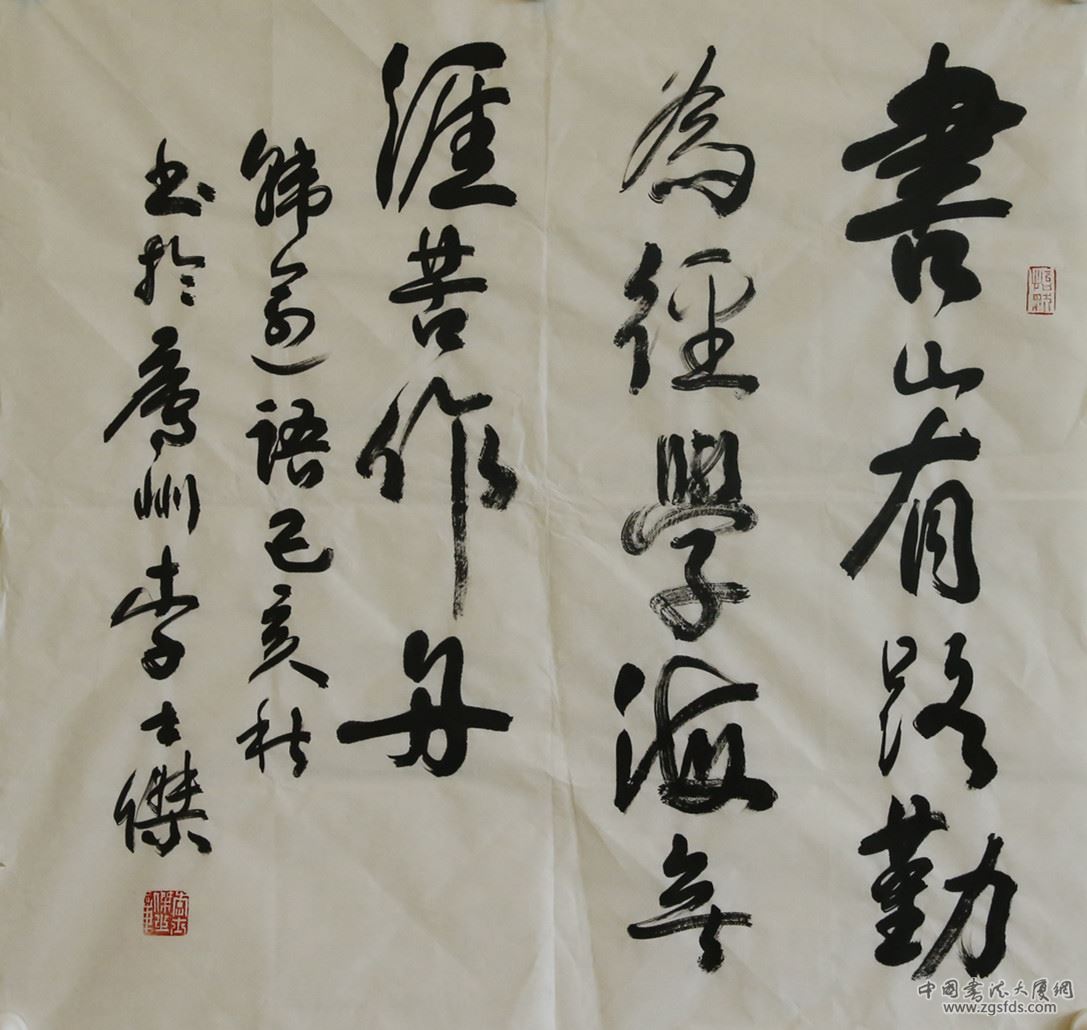 書山有路勤
為徑學海無
涯苦作舟
韓愈語己亥秋
書於廣州李士傑
中国書法大厦網
www.zgsfds.com